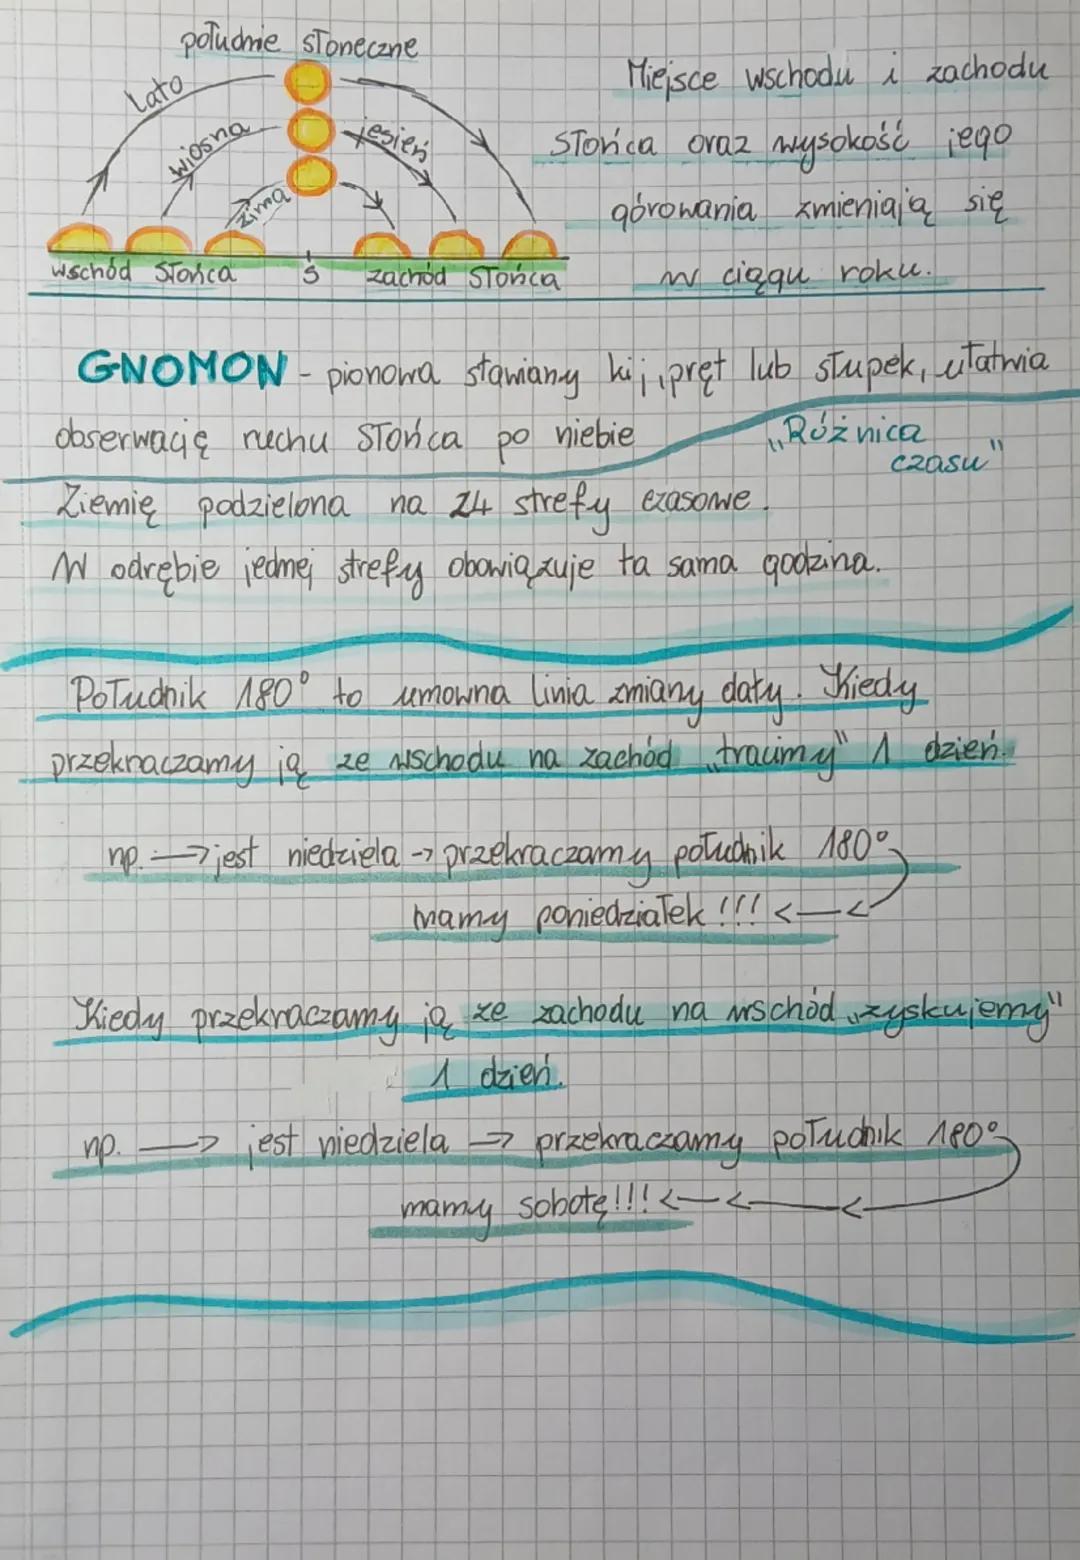 południe słoneczne
Lato
wiosna
jesień
zima
wschód Słońca Ś zachód Słońca
Miejsce wschodu i zachodu
Słońca oraz wysokość jego
górowania zmieniają się
w ciągu roku.
GNOMON - pionowa stawiany kij, pręt lub słupek, ułatwia
obserwację ruchu Słońca po niebie
„Różnica
czasu"
Ziemię podzielona na 24 strefy czasowe.
W odrębie jednej strefy obowiązuje ta sama godzina.
Południk 180° to umowna linia zmiany daty. Kiedy
przekraczamy ją ze wschodu na zachód „tracimy" 1 dzień.
np. → jest niedziela → przekraczamy południk 180°
mamy poniedziałek!!!
Kiedy przekraczamy ją ze zachodu na wschód „zyskujemy"
1 dzień.
np. → jest niedziela → przekraczamy południk 180°
mamy sobotę!!!